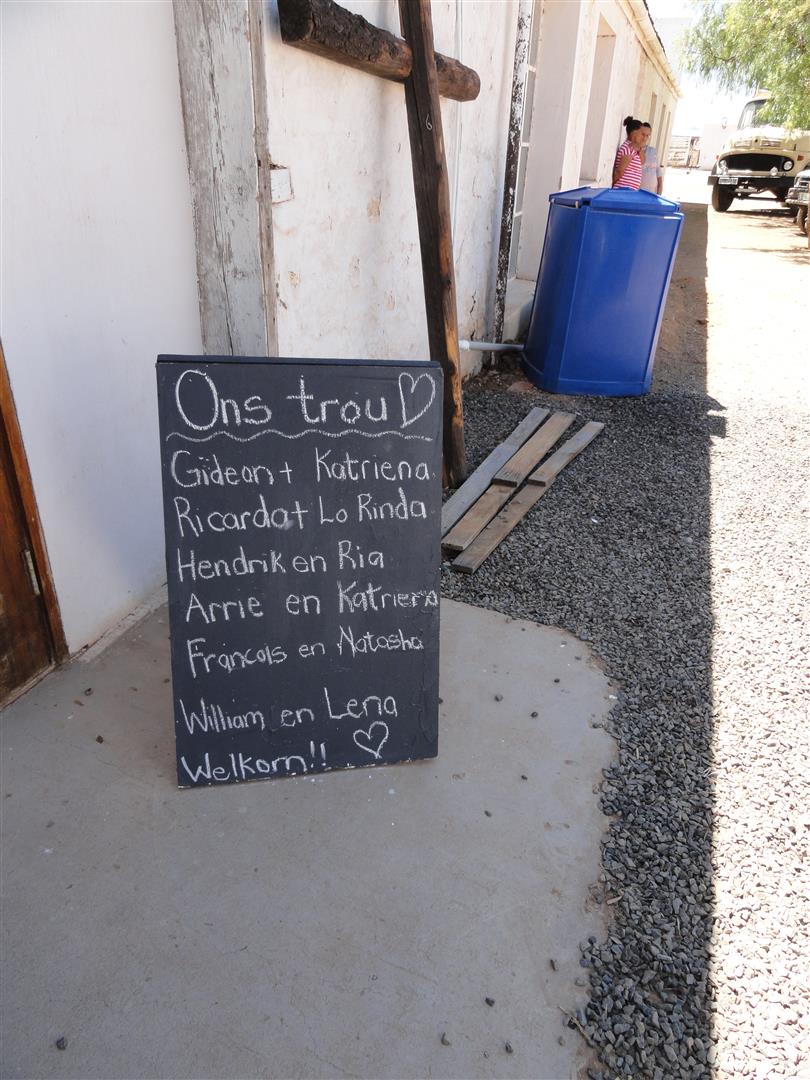 Ons trou ♡
Gideon + Katriena
Ricardo + Lo Rinda
Hendrik en Ria
Arrie en Katriena
Francois en Natasha
William en Lena
Welkom!! ♡